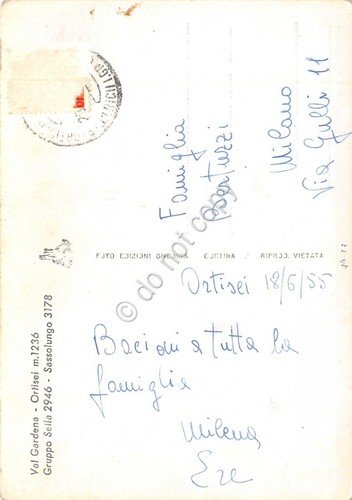 Famiglia
Bertuzzi
Milano
Via Gulli 11
FOTO EDIZIONI GHEDINA CORTINA - RIPROD. VIETATA
Ortisei 18/6/55
Bacioni a tutta la
famiglia
Milena
Val Gardena - Ortisei m.1236
Gruppo Sella 2946 - Sassolungo 3178
do not copy